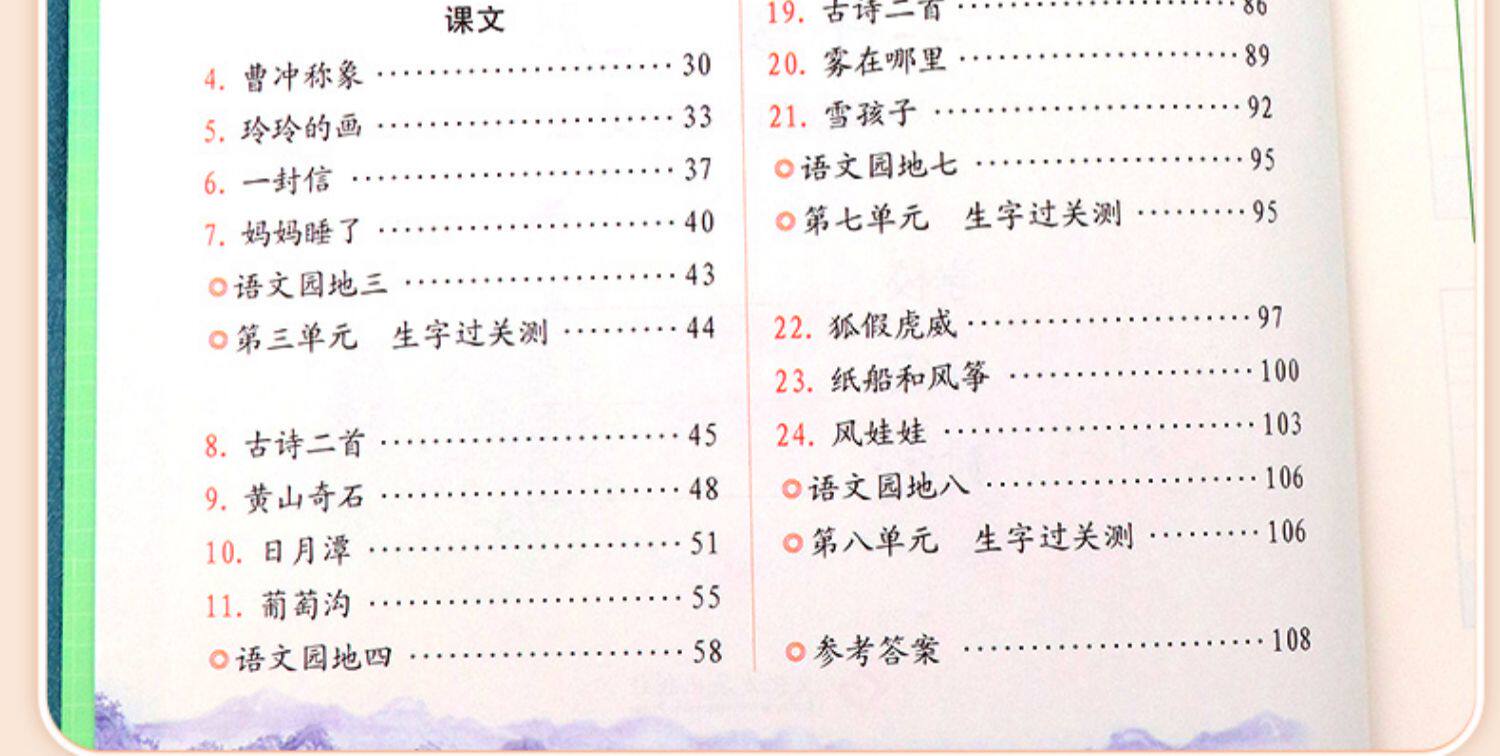 课文
4. 曹冲称象 ······················· 30
5. 玲玲的画 ······················· 33
6. 一封信 ························· 37
7. 妈妈睡了 ······················· 40
语文园地三 ····················· 43
第三单元 生字过关测 ········· 44
8. 古诗二首 ······················· 45
9. 黄山奇石 ······················· 48
10. 日月潭 ························ 51
11. 葡萄沟 ························ 55
语文园地四 ····················· 58
19. 古诗二首 ······················ 86
20. 雾在哪里 ······················ 89
21. 雪孩子 ························ 92
语文园地七 ····················· 95
第七单元 生字过关测 ········· 95
22. 狐假虎威 ······················ 97
23. 纸船和风筝 ··················· 100
24. 风娃娃 ························ 103
语文园地八 ····················· 106
第八单元 生字过关测 ········· 106
参考答案 ······················· 108